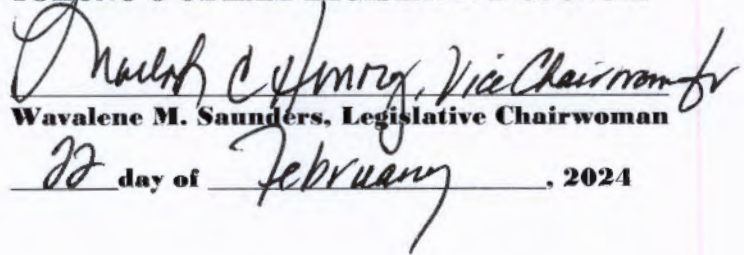 C Henry, Vice Chairwoman for
Wavalene M. Saunders, Legislative Chairwoman
22 day of February, 2024